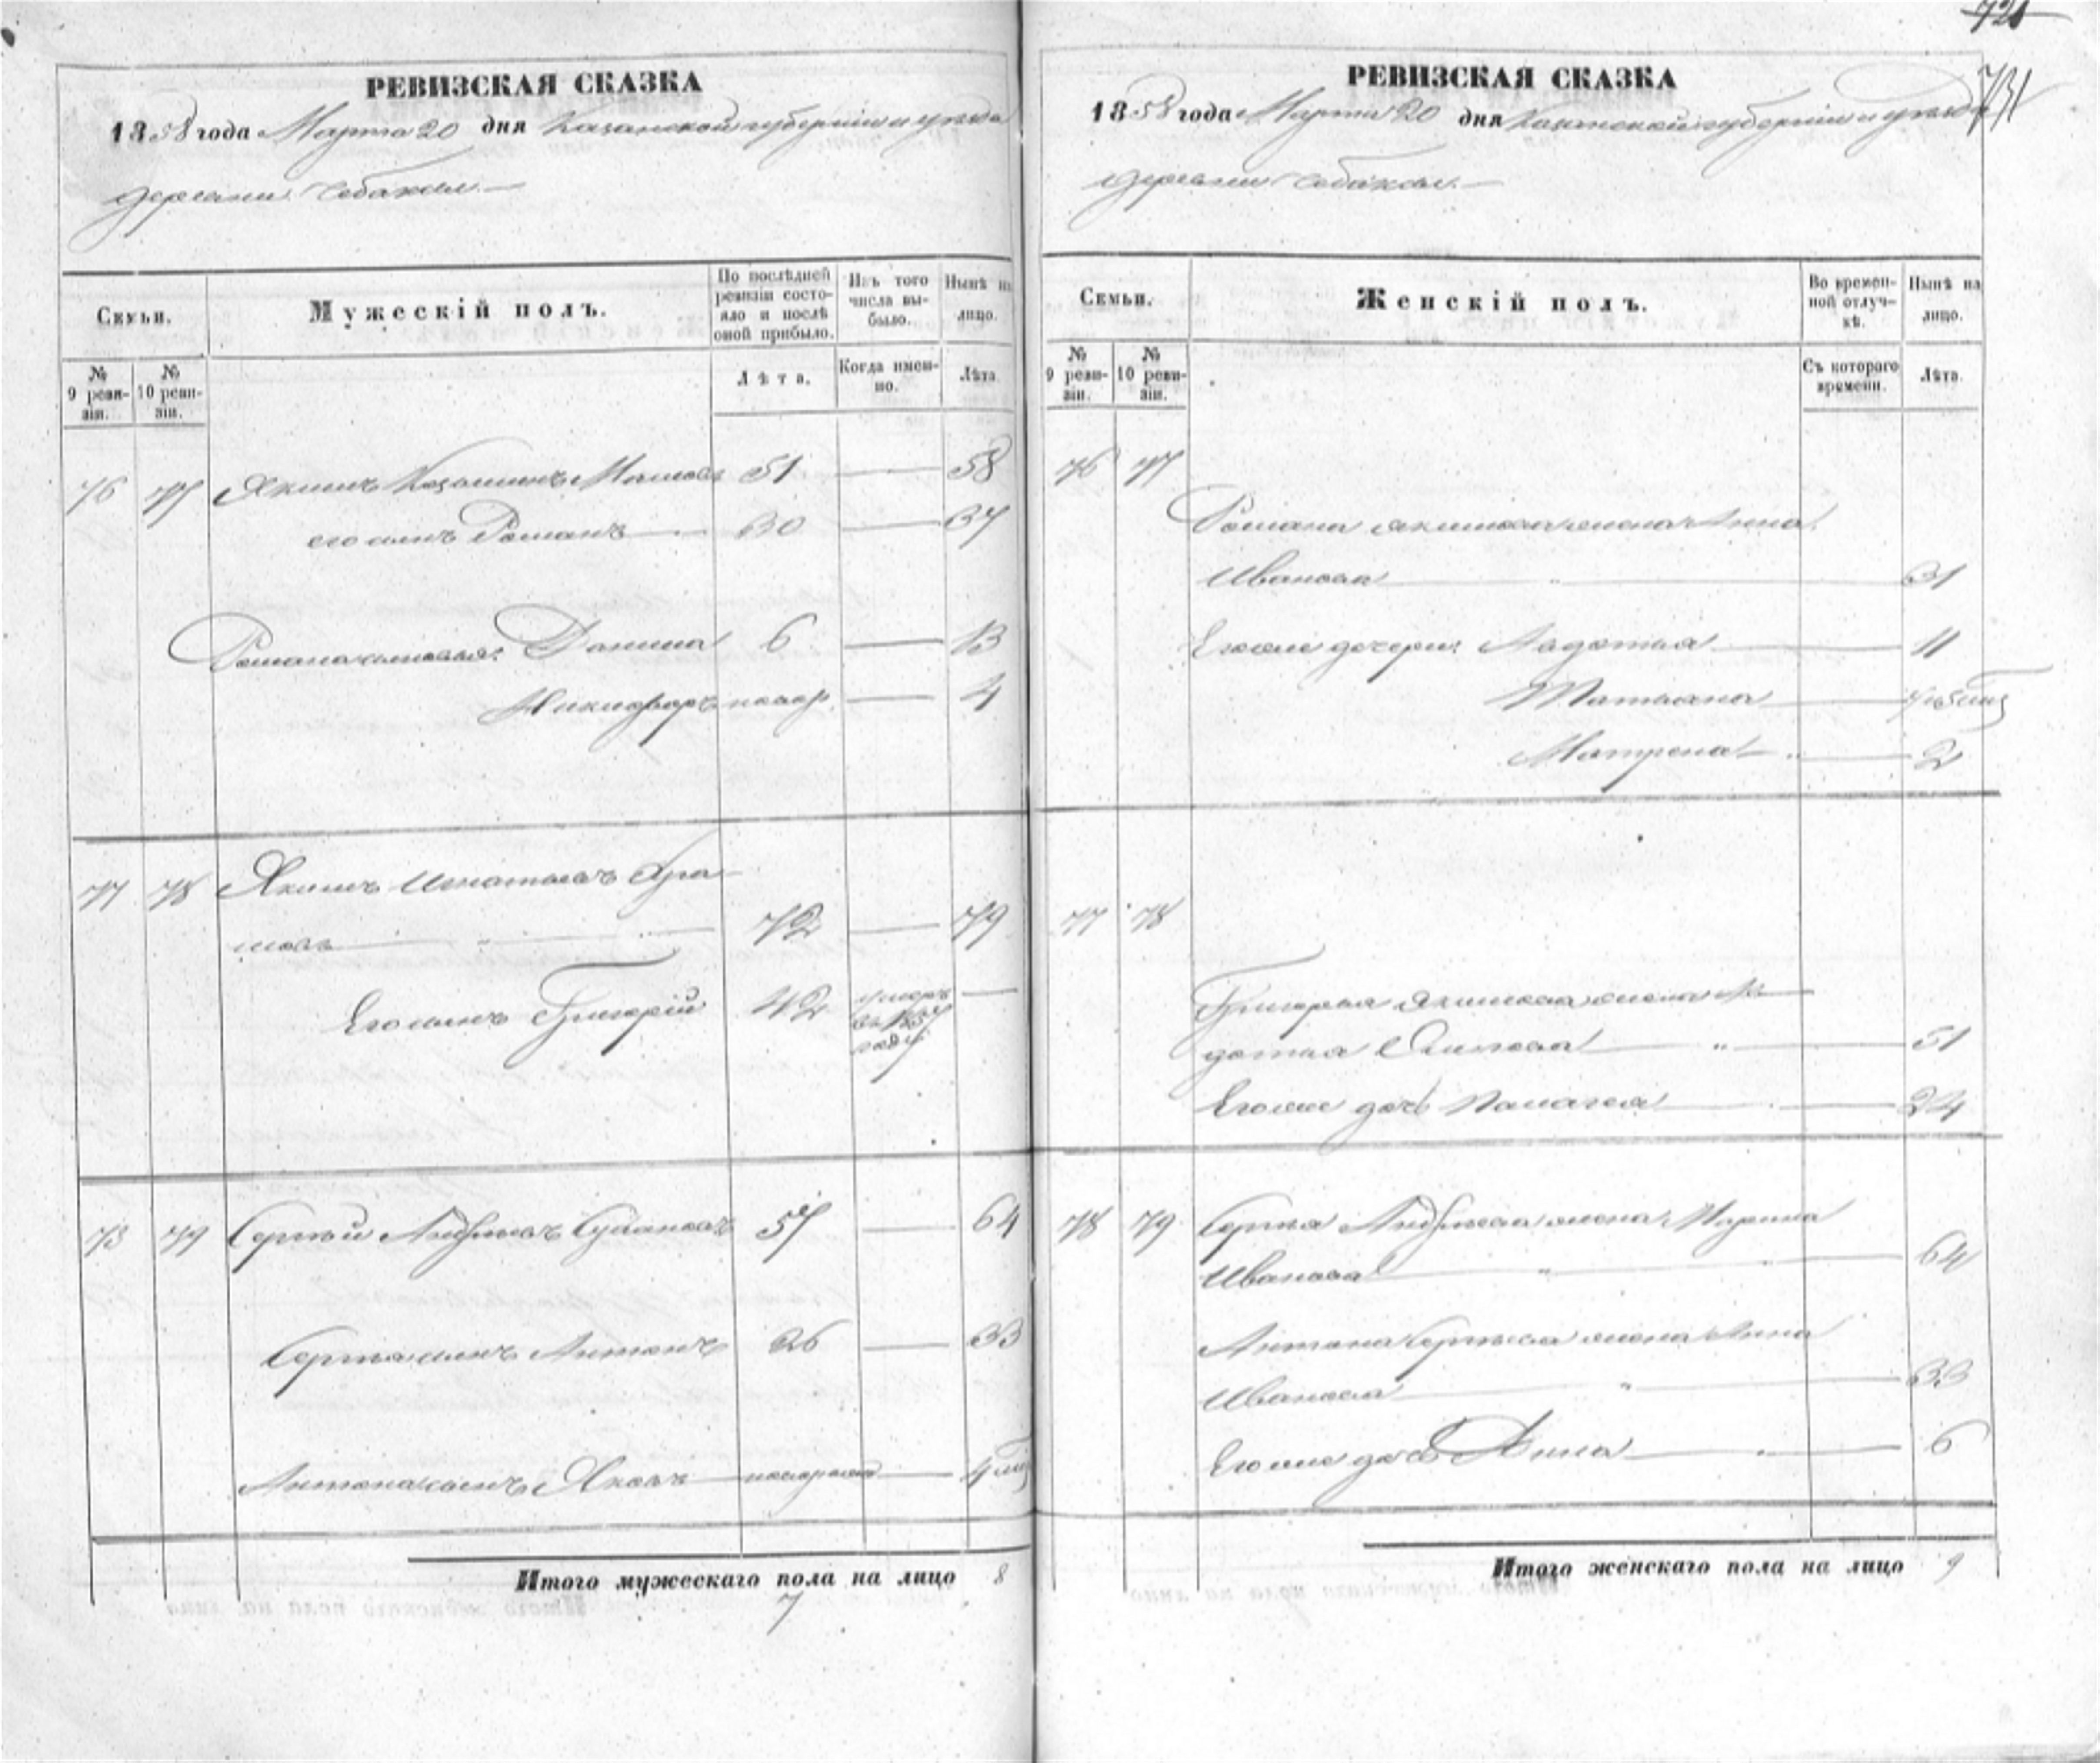 721
731
РЕВИЗСКАЯ СКАЗКА
1858 года Марта 20 дня Казанской губерніи и уѣзда
деревни Собакая.
Семьи.
Мужескій полъ.
По послѣдней ревизіи состояло и послѣ оной прибыло.
Изъ того числа выбыло.
Нынѣ на лицо.
№ 9 ревизіи.
№ 10 ревизіи.
Лѣта.
Когда именно.
Лѣта
76 77 Якимъ 51 — 58
его сынъ Романъ — 30 — 37
Романа сыновья: Данила 6 — 13
Никифоръ новор. — 4
77 78 Якимъ Игнатьевъ
72 — 79
Его сынъ Григорій 42 умеръ въ году —
73 79 Сергѣй Андреевъ 57 — 64
Сергѣя сынъ Антонъ 26 — 33
Антона сынъ Яковъ — —
Итого мужескаго пола на лицо 8
7
РЕВИЗСКАЯ СКАЗКА
1858 года Марта 20 дня Казанской губерніи и уѣзда
деревни Собакая.
Семьи.
Женскій полъ.
Во временной отлучкѣ.
Нынѣ на лицо.
№ 9 ревизіи.
№ 10 ревизіи.
Съ котораго времени.
Лѣта.
76 77
Романа Якимова жена Анна
Иванова — 31
Его же дочери: Авдотья — 11
Татьяна —
Матрена — 2
77 78
Григорья Якимова жена Ав
дотья — 51
Его же дочь Палагея — 24
78 79 Сергѣя Андреева жена Марина
Иванова — 64
Антона Сергѣева жена Анна
Иванова — 33
Его же дочь Анна — 6
Итого женскаго пола на лицо 9